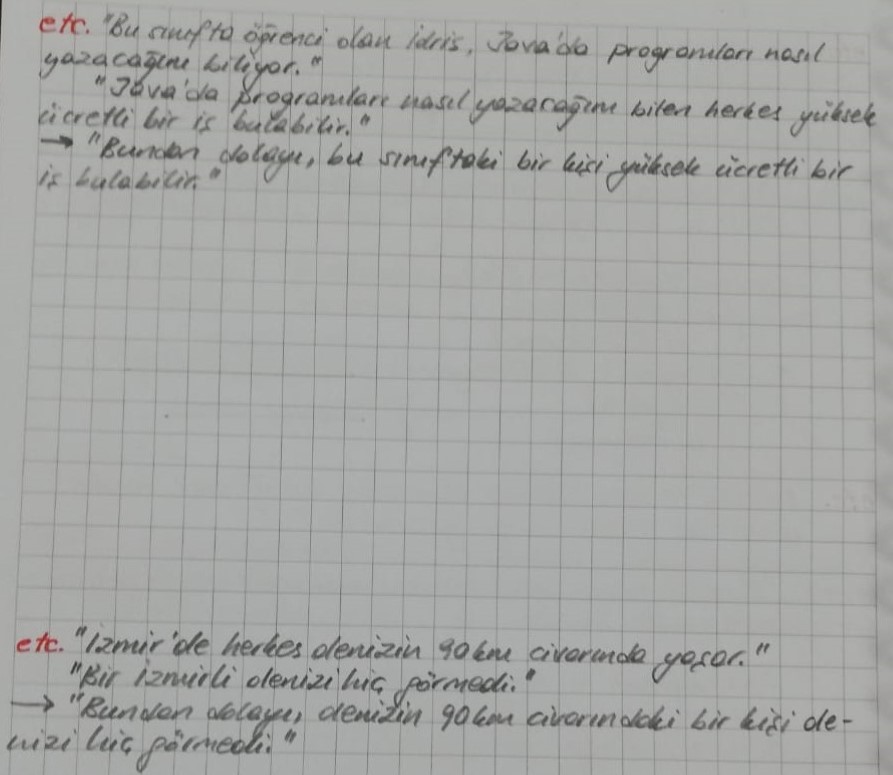 etc. "Bu sınıfta öğrenci olan İdris, Java'da programları nasıl
yazacağını biliyor."
"Java'da programları nasıl yazacağını bilen herkes yüksek
ücretli bir iş bulabilir."
→ "Bundan dolayı, bu sınıftaki bir kişi yüksek ücretli bir
iş bulabilir."
etc. "İzmir'de herkes denizin 90 km civarında yaşar."
"Bir İzmirli denizi hiç görmedi."
→ "Bundan dolayı, denizin 90 km civarındaki bir kişi de-
nizi hiç görmedi."